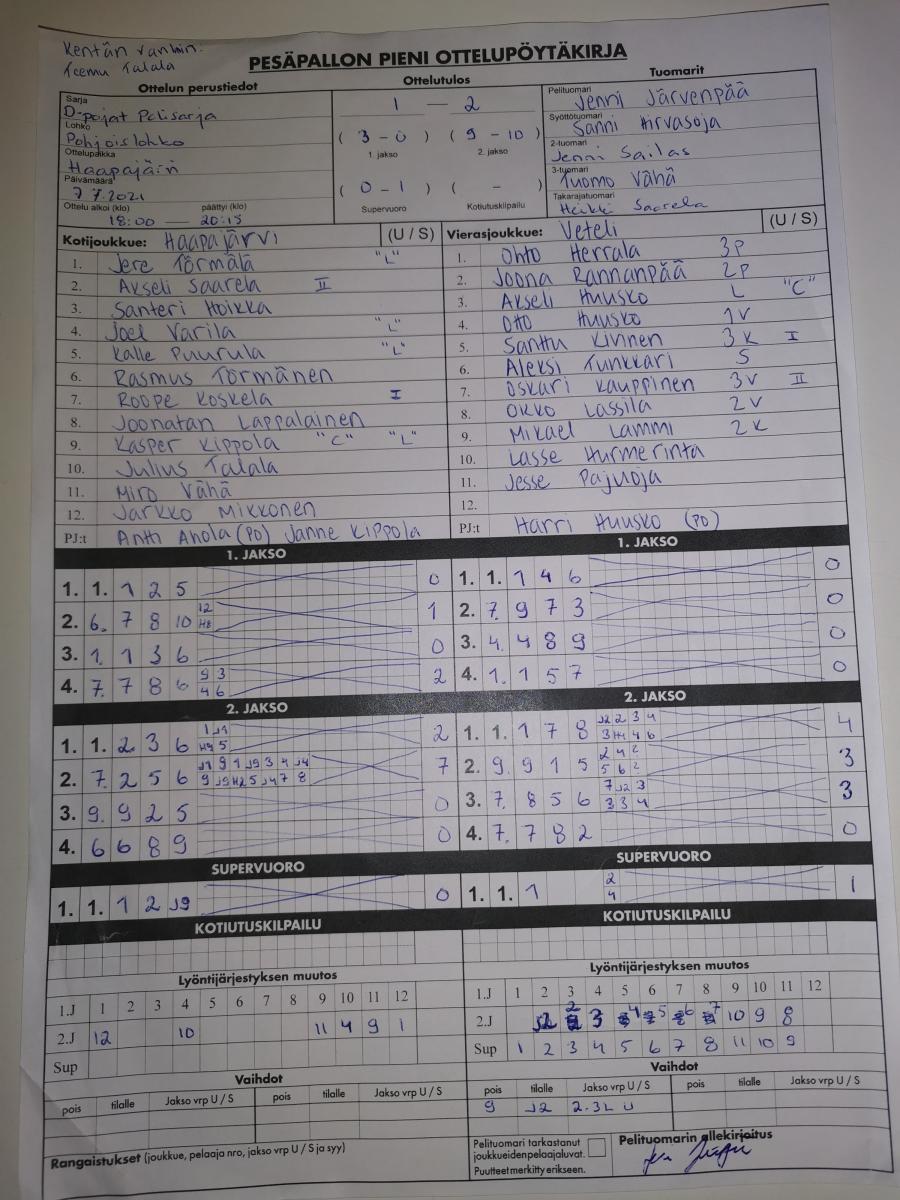 Kentän vanhin:
Teemu Talala
PESÄPALLON PIENI OTTELUPÖYTÄKIRJA
Ottelun perustiedot Ottelutulos Tuomarit
Sarja
D-pojat Polisarja
Lohko
Pohjoislohko
Ottelupaikka
Haapajärvi
Päivämäärä
7.7.2021
Ottelu alkoi (klo) päättyi (klo)
18:00 — 20:15
1 — 2
( 3 - 0 ) ( 9 - 10 )
1. jakso 2. jakso
( 0 - 1 ) ( - )
Supervuoro Kotiutuskilpailu
Pelituomari
Jenni Järvenpää
Syöttötuomari
Sanni Hirvasoja
2-tuomari
Jenni Sailas
3-tuomari
Tuomo Vähä
Takarajatuomari
Heikki Saarela
Kotijoukkue: Haapajärvi (U / S)
1. Jere Törmälä "L"
2. Akseli Saarela II
3. Santeri Hoikka
4. Joel Varila "L"
5. Kalle Puurula "L"
6. Rasmus Törmänen
7. Roope Koskela I
8. Joonatan Lappalainen
9. Kasper Kippola "C" "L"
10. Julius Talala
11. Miro Vähä
12. Jarkko Mikkonen
PJ:t Antti Anola (PO) Janne Kippola
Vierasjoukkue: Veteli (U / S)
1. Ohto Herrala 3P
2. Joona Rannanpää 2P
3. Akseli Huusko L "C"
4. Otto Huusko 1V
5. Santtu Kivinen 3K I
6. Aleksi Tunkkari S
7. Oskari Kauppinen 3V II
8. Okko Lassila 2V
9. Mikael Lammi 2K
10. Lasse Hurmerinta
11. Jesse Pajuoja
12.
PJ:t Harri Huusko (PO)
1. JAKSO
1. 1. 1 2 5 0
2. 6. 7 8 10 12 H8 1
3. 1. 1 3 6 0
4. 7. 7 8 6 9 3 4 6 2
1. JAKSO
1. 1. 1 4 6 0
2. 7. 9 7 3 0
3. 4. 4 8 9 0
4. 1. 1 5 7 0
2. JAKSO
1. 1. 2 3 6 2
2. 7. 2 5 6 7
3. 9. 9 2 5 0
4. 6 6 8 9 0
2. JAKSO
1. 1. 1 7 8 J2 2 3 4 4
2. 9. 9 1 5 2 4 2 5 6 2 3
3. 7. 8 5 6 7 J2 3 3 3 4 3
4. 7. 7 8 2 0
SUPERVUORO
1. 1. 1 2 J9 0
SUPERVUORO
1. 1. 1 2 4 1
KOTIUTUSKILPAILU
KOTIUTUSKILPAILU
Lyöntijärjestyksen muutos
1.J 1 2 3 4 5 6 7 8 9 10 11 12
2.J 12 10 11 4 9 1
Sup
Lyöntijärjestyksen muutos
1.J 1 2 3 4 5 6 7 8 9 10 11 12
2.J 10 9 8
Sup 1 2 3 4 5 6 7 8 11 10 9
Vaihdot
pois tilalle Jakso vrp U / S pois tilalle Jakso vrp U / S
Vaihdot
pois tilalle Jakso vrp U / S pois tilalle Jakso vrp U / S
9 J2 2.3L U
Rangaistukset (joukkue, pelaaja nro, jakso vrp U / S ja syy)
Pelituomari tarkastanut
joukkueiden pelaajaluvat.
Puutteet merkitty erikseen.
Pelituomarin allekirjoitus